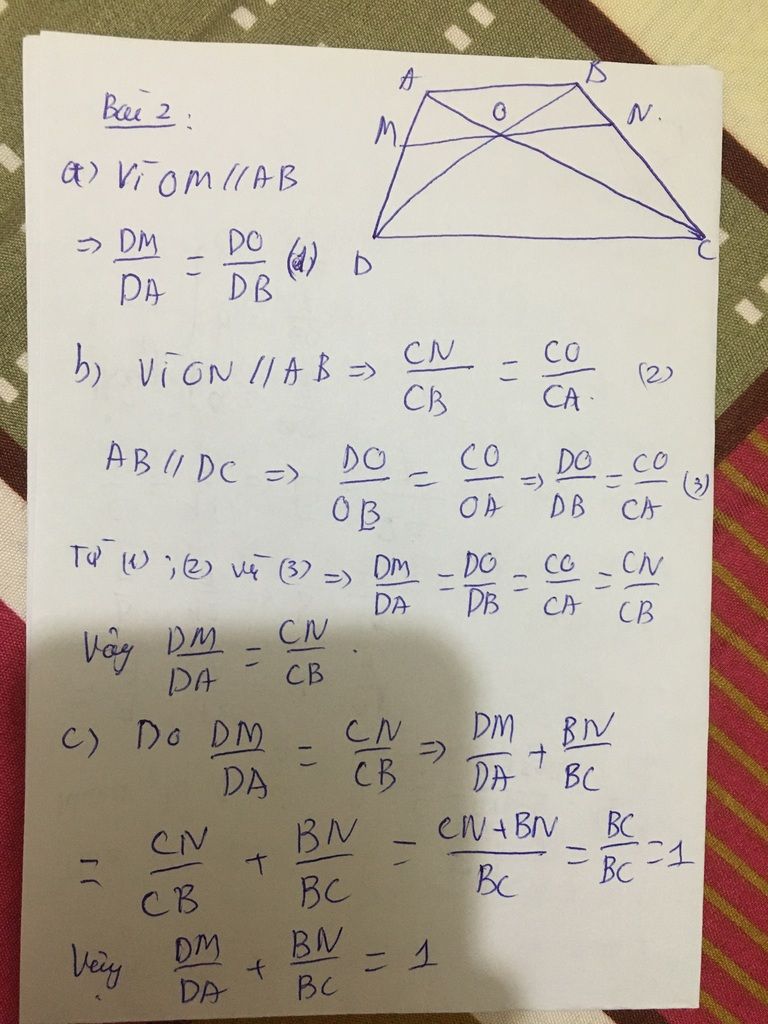 Bài 2:
A B
O N.
M
D C
a) Vì OM // AB
⇒ DM/DA = DO/DB (1)
b) Vì ON // AB ⇒ CN/CB = CO/CA. (2)
AB // DC ⇒ DO/OB = CO/OA ⇒ DO/DB = CO/CA (3)
Từ (1); (2) và (3) ⇒ DM/DA = DO/DB = CO/CA = CN/CB
Vậy DM/DA = CN/CB.
c) Do DM/DA = CN/CB ⇒ DM/DA + BN/BC
= CN/CB + BN/BC = CN+BN/BC = BC/BC = 1
Vậy DM/DA + BN/BC = 1